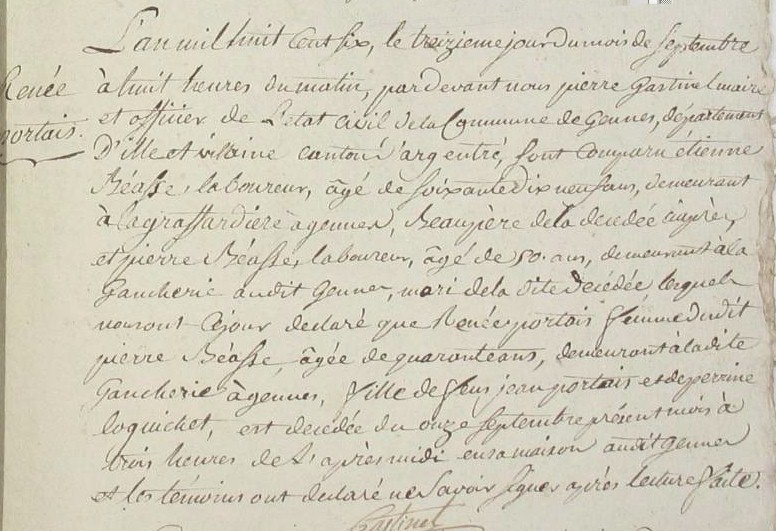 L'an mil huit cent six, le treizieme jour du mois de septembre
Renée
à huit heures du matin, pardevant nous pierre gastinel maire
portais.
et officier de L'état Civil de la Commune de Gennes, département
D'ille et vilaine canton d'argentré, sont comparu étienne
Béasse, laboureur, âgé de soixante dix neuf ans, demeurant
à la graffardiere à gennes, Beaupière de la decedée ciaprès,
et pierre Béasse, laboureur, âgé de 50. ans, demeurant à la
Gancherie audit Gennes, mari de la dite décédée lequels
nous ont cejour declaré que Renée portais femme dudit
pierre Béasse, âgée de quarante ans, demeurant à la dite
Gancherie à gennes, fille de feus jean portais et de perrine
loquichet, est decedée du onze septembre présent mois à
trois heures de L'après midi en sa maison audit gennes
et les témoins ont déclaré ne Savoir signer après lecture faite.
Gastinel